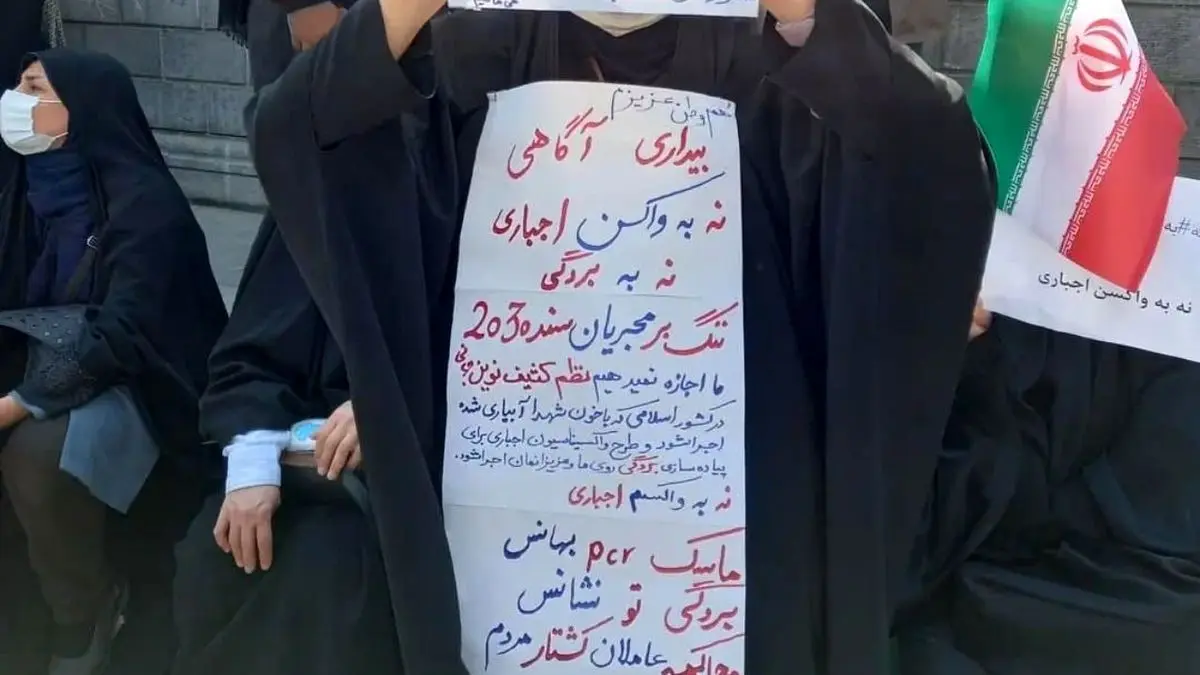 هم وطن عزیزم
بیداری آگاهی
نه به واکسن اجباری
نه به بردگی
ننگ بر مجریان سند 2030
ما اجازه نمیدهیم نظم کثیف نوین جهانی
در کشور اسلامی که با خون شهدا آبیاری شده
اجرا شود و طرح واکسیناسیون اجباری برای
پیاده سازی بردگی روی ما و عزیزانمان اجرا شود.
نه به واکسن اجباری
ماسک pcr بهانس
بردگی تو نشانس
محاکمه عاملان کشتار مردم
#نه به
نه به واکسن اجباری